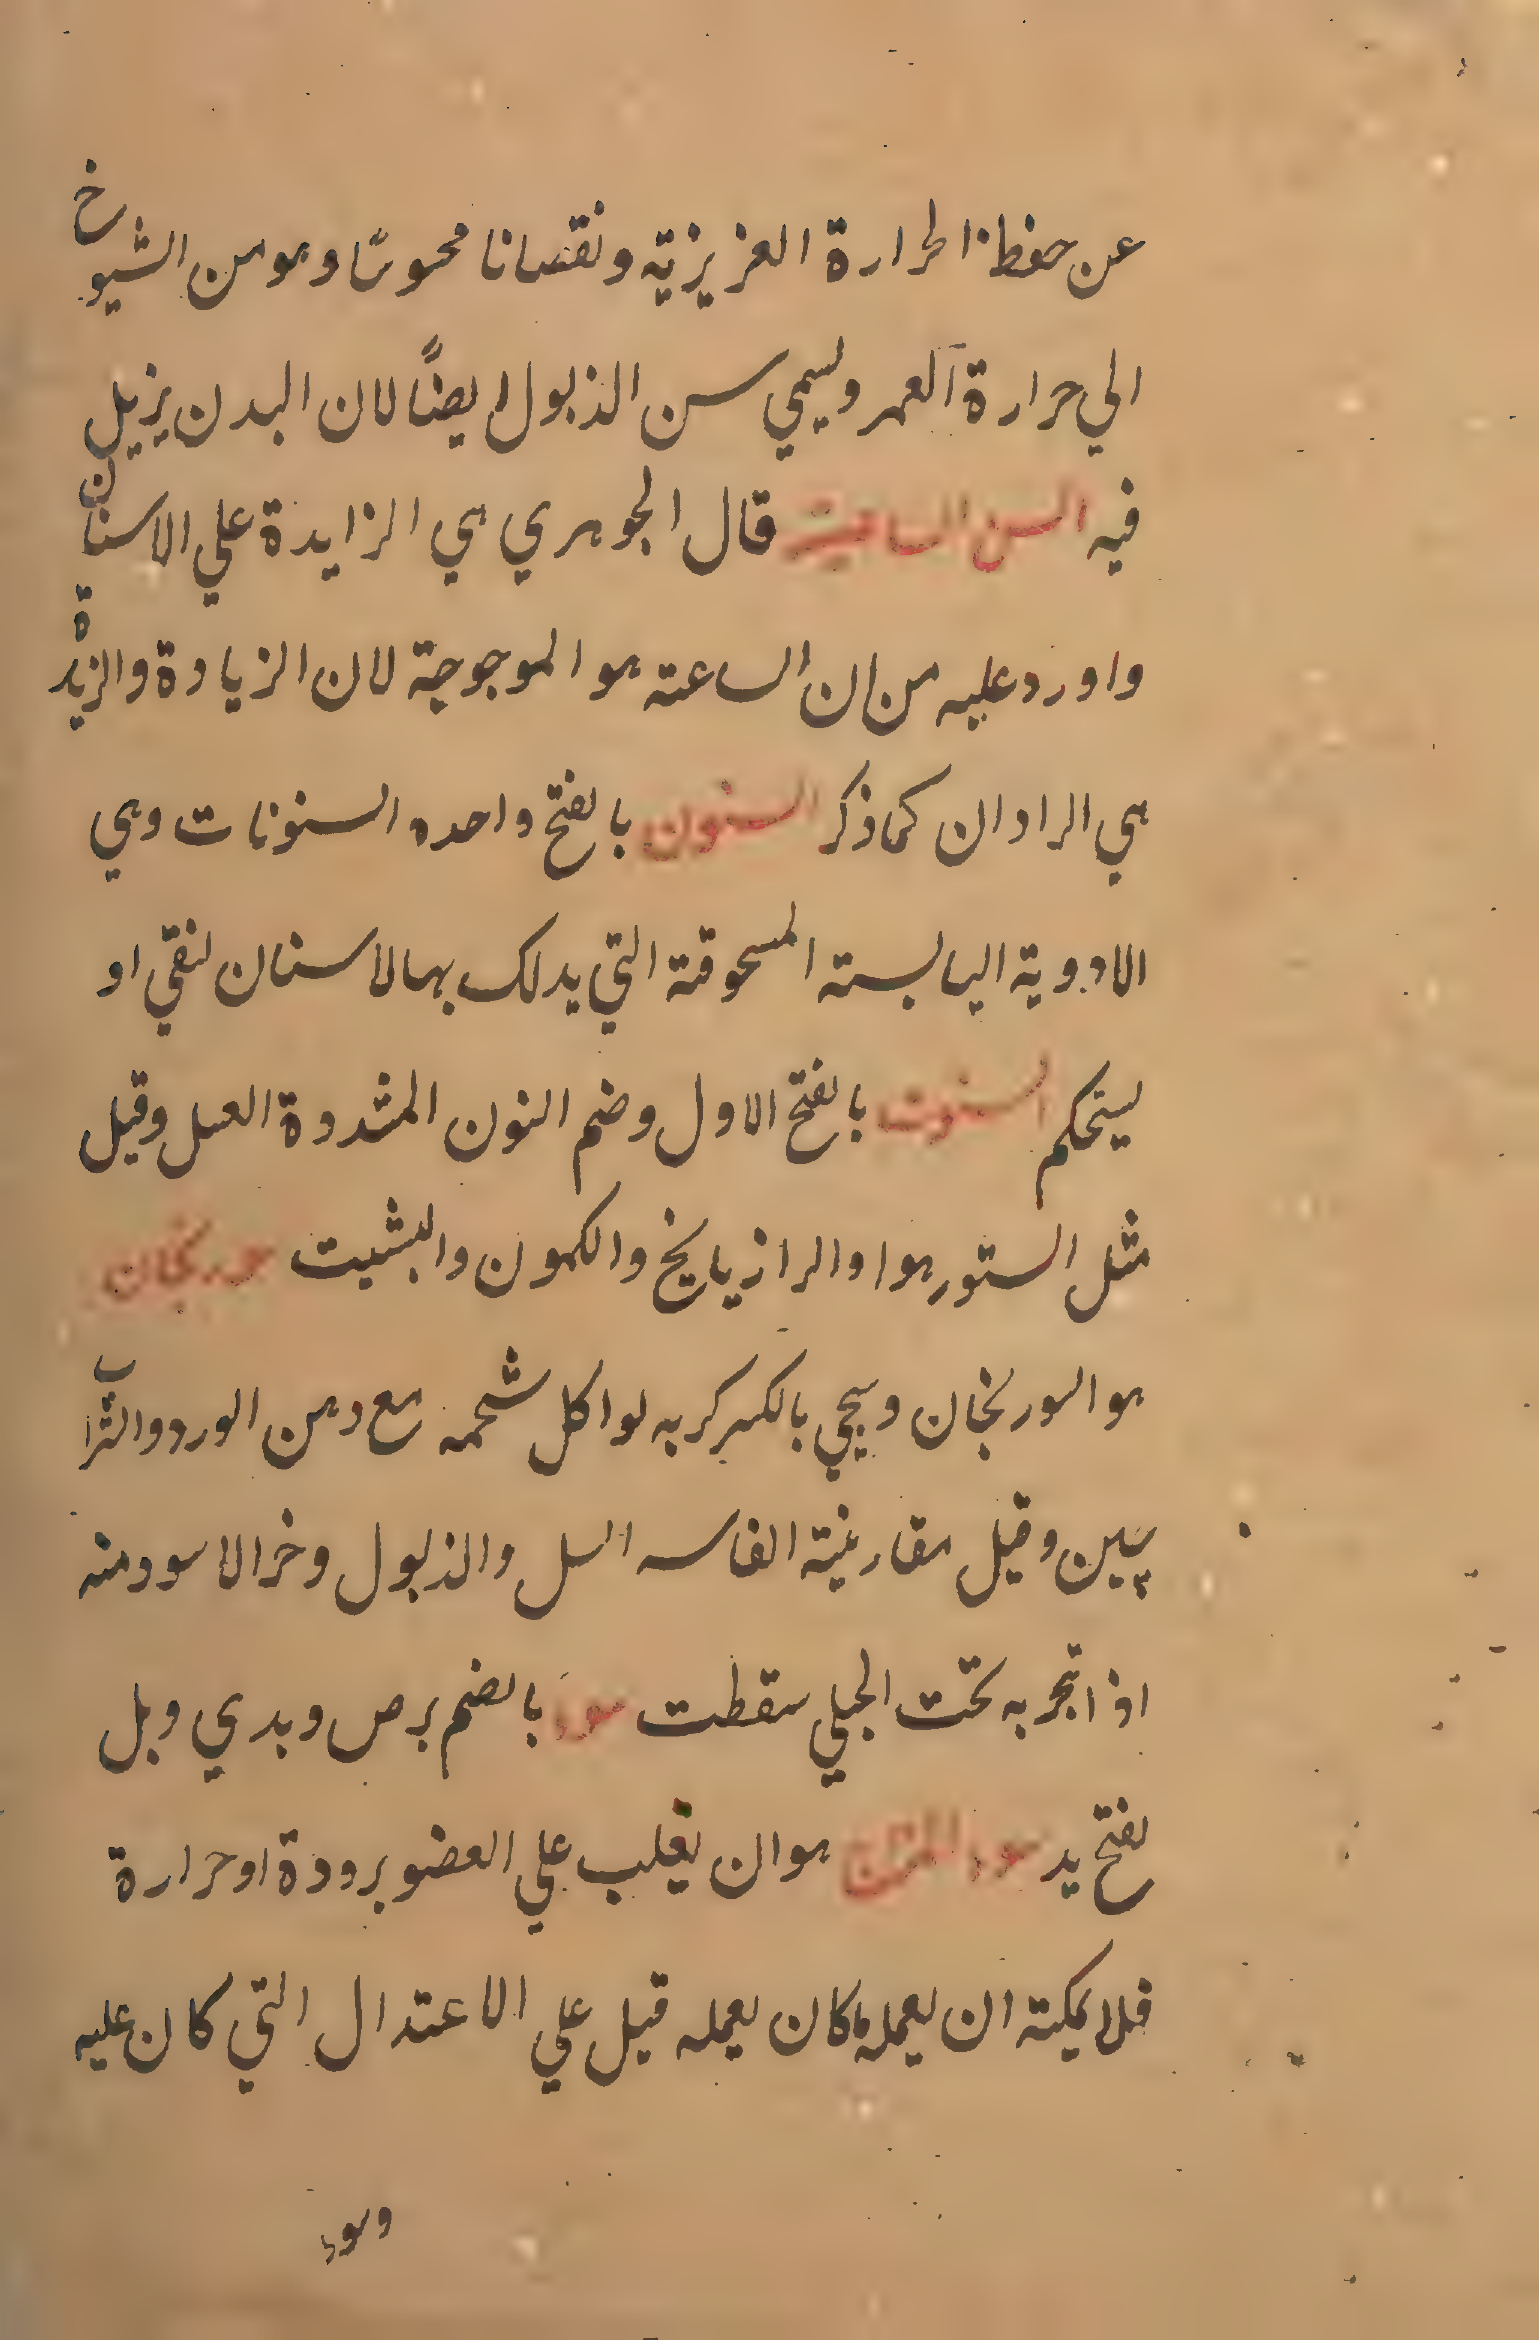 عن حفظ الحرارة الغريزية ونقصانا محسوسًا وهو من الشيوخ
الي حرارة العمر ويسمي سن الذبول ايضًا لان البدن يزيل
فيه السن الساعية قال الجوهري هي الزايدة علي الاسنان
واورد عليه من ان الساعته هو الموجوجة لان الزيادة والزيدة
هي الرادان كما ذكر السنون بالفتح واحده السنونات وهي
الادوية اليابسته المسحوقة التي يدلك بها لاسنان لنقي او
ليتحكم السنوت بالفتح الاول وضم النون المشدوة العسل وقيل
مثل الستور هوا والرازيايخ والكمون والبشيت سورنجان
هو السورنجان وسيجي بالكسر كربه لو اكل شحمه مع دهن الورد والتراب
پيين وقيل مقارنية الفاسه السل والذبول وخر الاسود منه
اذ اتجر به تحت الجبلي سقطت سوء بالضم برص وبدي وبل
لفتح يد سوء المزاج هو ان يغلب علي العضو برودة او حرارة
فلا يمكنه ان يعمله كان يعمله قيل علي الاعتدال التي كان عليه
وسوء